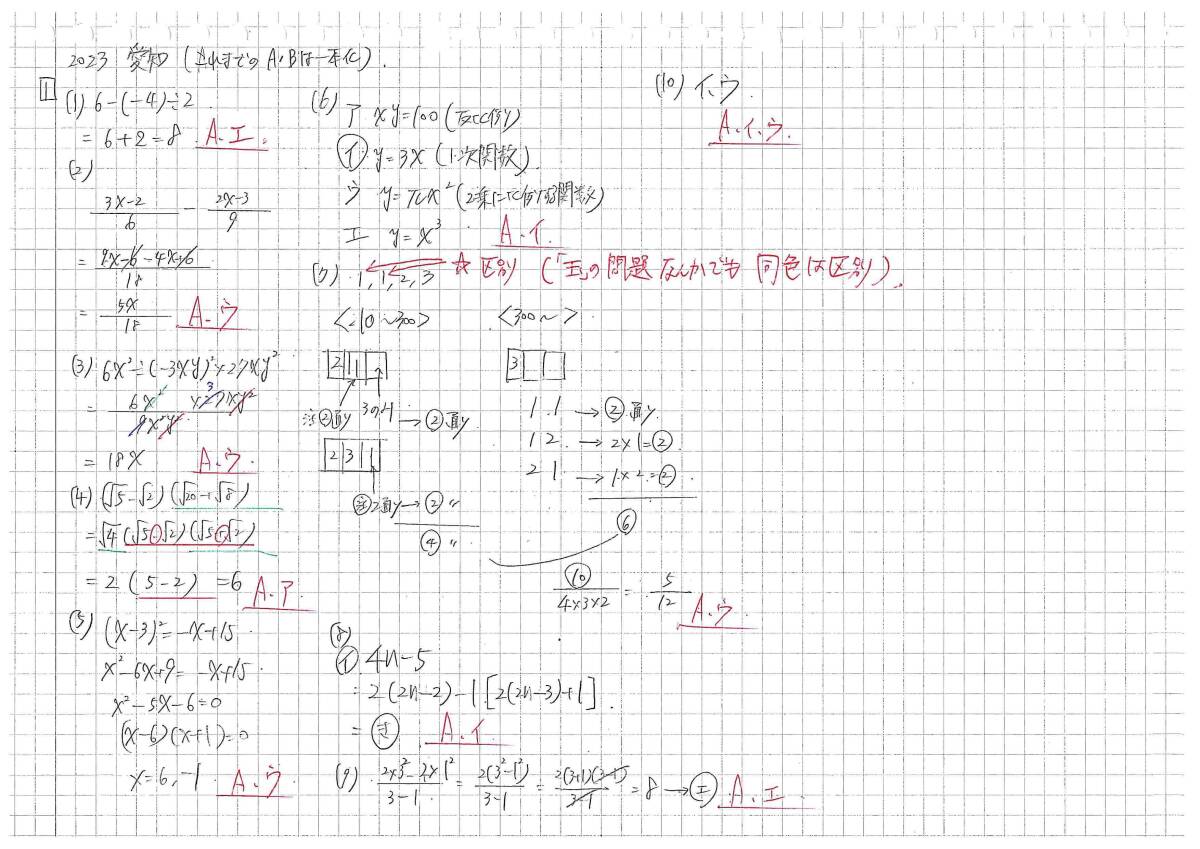 2023 愛知 (これまでのA,Bは一本化).
1
(1) 6-(-4)÷2
= 6+2=8 A.エ.
(2)
3x-2/6 - 2x-3/9
= 9x-6-4x+6/18
= 5x/18 A.ウ
(3) 6x²÷(-3xy)²×27xy²
= 6x² ×27xy²/9x²y² 3
= 18x A.ウ.
(4) (√5-√2)(√20+√8)
= √4(√5-√2)(√5+√2)
= 2(5-2) =6 A.ア.
(5) (x-3)²=-x+15
x²-6x+9=-x+15
x²-5x-6=0
(x-6)(x+1)=0
x=6,-1 A.ウ
(6) ア xy=100 (反比例)
イ y=3x (1次関数).
ウ y=πx² (2乗に比例する関数)
エ y=x³ A.イ.
(7) 1,1,2,3 ☆区別 (「玉」の問題なんかでも同色は区別).
<210~300> <300~>
2 1 1
3
注②通り 3 or 1 → ②通り
2 3 1
注2通り→② 〃
④ 〃
1 1 → ②通り
1 2 → 2×1=②
2 1 → 1×2=②
⑥
⑩/4×3×2 = 5/12 A.ウ.
(8)
イ 4n-5
= 2(2n-2)-1 [2(2n-3)+1]
= 奇 A.イ
(9) 2×3²-2×1²/3-1 = 2(3²-1²)/3-1 = 2(3+1)(3-1)/3-1 =8 → エ A.エ.
(10) イ,ウ.
A.イ.ウ.